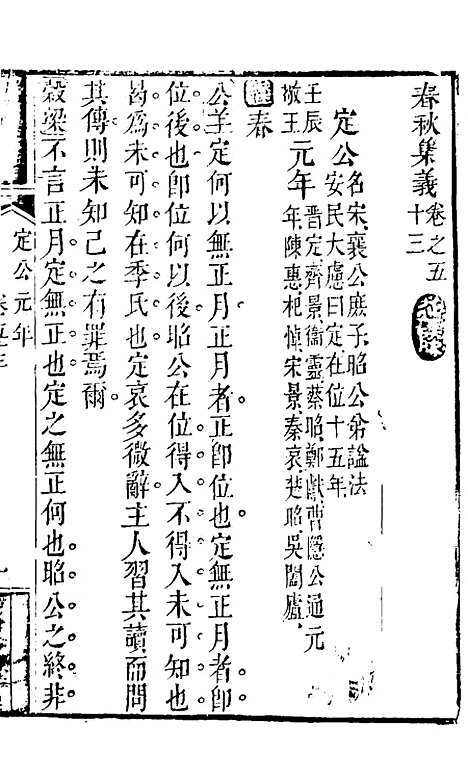 春秋集義卷之五十三
定公名宋襄公庶子昭公弟諡法安民大慮曰定在位十五年
壬辰敬王元年晋定齊景衞靈蔡昭鄭獻曹隱公通元年陳惠杞悼宋景秦哀楚昭吳闔廬
經春
公羊定何以無正月正月者正卽位也定無正月者卽
位後也卽位何以後昭公在位得入不得入未可知也
曷爲未可知在季氏也定哀多微辭主人習其讀而問
其傳則未知己之有罪焉爾
穀梁不言正月定無正也定之無正何也昭公之終非
定公元年